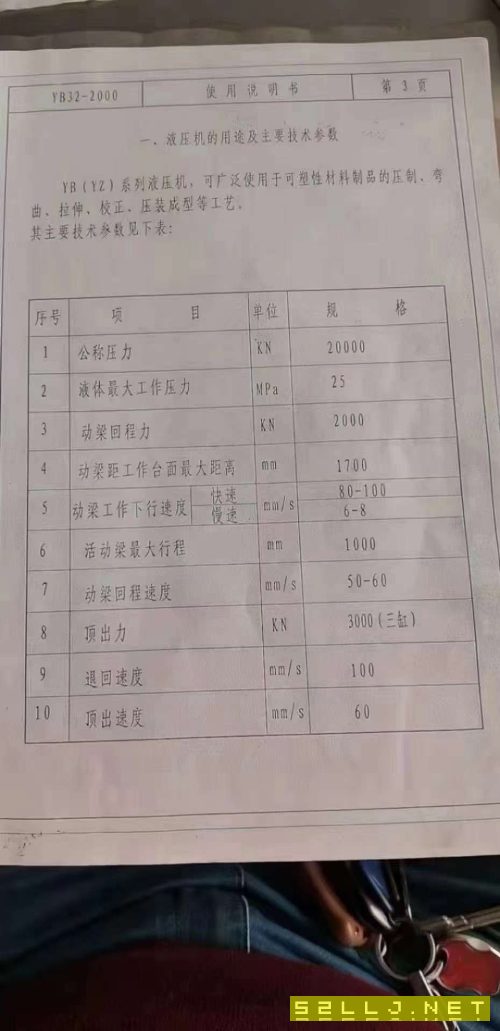 YB32-2000 使用说明书 第 3 页
一、液压机的用途及主要技术参数
YB(YZ)系列液压机，可广泛使用于可塑性材料制品的压制、弯
曲、拉伸、校正、压装成型等工艺。
其主要技术参数见下表：
序号 项 目 单位 规 格
1 公称压力 KN 20000
2 液体最大工作压力 MPa 25
3 动梁回程力 KN 2000
4 动梁距工作台面最大距离 mm 1700
5 动梁工作下行速度 快速 mm/s 80-100
慢速 6-8
6 活动梁最大行程 mm 1000
7 动梁回程速度 mm/s 50-60
8 顶出力 KN 3000(三缸)
9 退回速度 mm/s 100
10 顶出速度 mm/s 60
52LLJ.NET